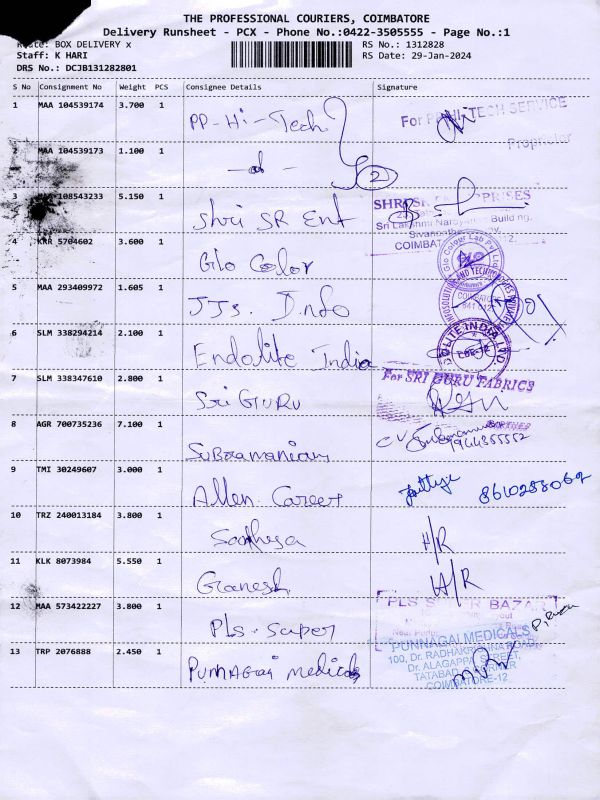 THE PROFESSIONAL COURIERS, COIMBATORE
Delivery Runsheet - PCX - Phone No.:0422-3505555 - Page No.:1
Route: BOX DELIVERY x
RS No.: 1312828
Staff: K HARI
RS Date: 29-Jan-2024
DRS No.: DCJB131282801
S No Consignment No Weight PCS Consignee Details Signature
1 MAA 104539174 3.700 1 PP-Hi-Tech
For HI-TECH SERVICE
Proprietor
2 MAA 104539173 1.100 1 -d- 2
3 108543233 5.150 1 Shri SR Ent
SHRI SR ENTERPRISES
Sri Lakshmi Narayanan Building,
COIMBATORE 12.
4 KRR 5704602 3.600 1 Glo Color
Glo Colour Lab Pvt Ltd
5 MAA 293409972 1.605 1 JJs. Info
6 SLM 338294214 2.100 1 Endolite India
ENDOLITE INDIA LTD
7 SLM 338347610 2.800 1 Sri GURU
For SRI GURU FABRICS
PARTNER
8 AGR 700735236 7.100 1 Subramaniam
9944355552
9 TMI 30249607 3.000 1 Allen Career
8610288062
10 TRZ 240013184 3.800 1 Sathya
H/R
11 KLK 8073984 5.550 1 Ganesh
H/R
12 MAA 573422227 3.800 1 PLS-Super
PLS SUPER BAZAR
13 TRP 2076888 2.450 1 Punnagai medicals
PUNNAGAI MEDICALS
100, Dr. RADHAKRISHNA ROAD,
Dr. ALAGAPPA STREET,
TATABAD,
COIMBATORE-12